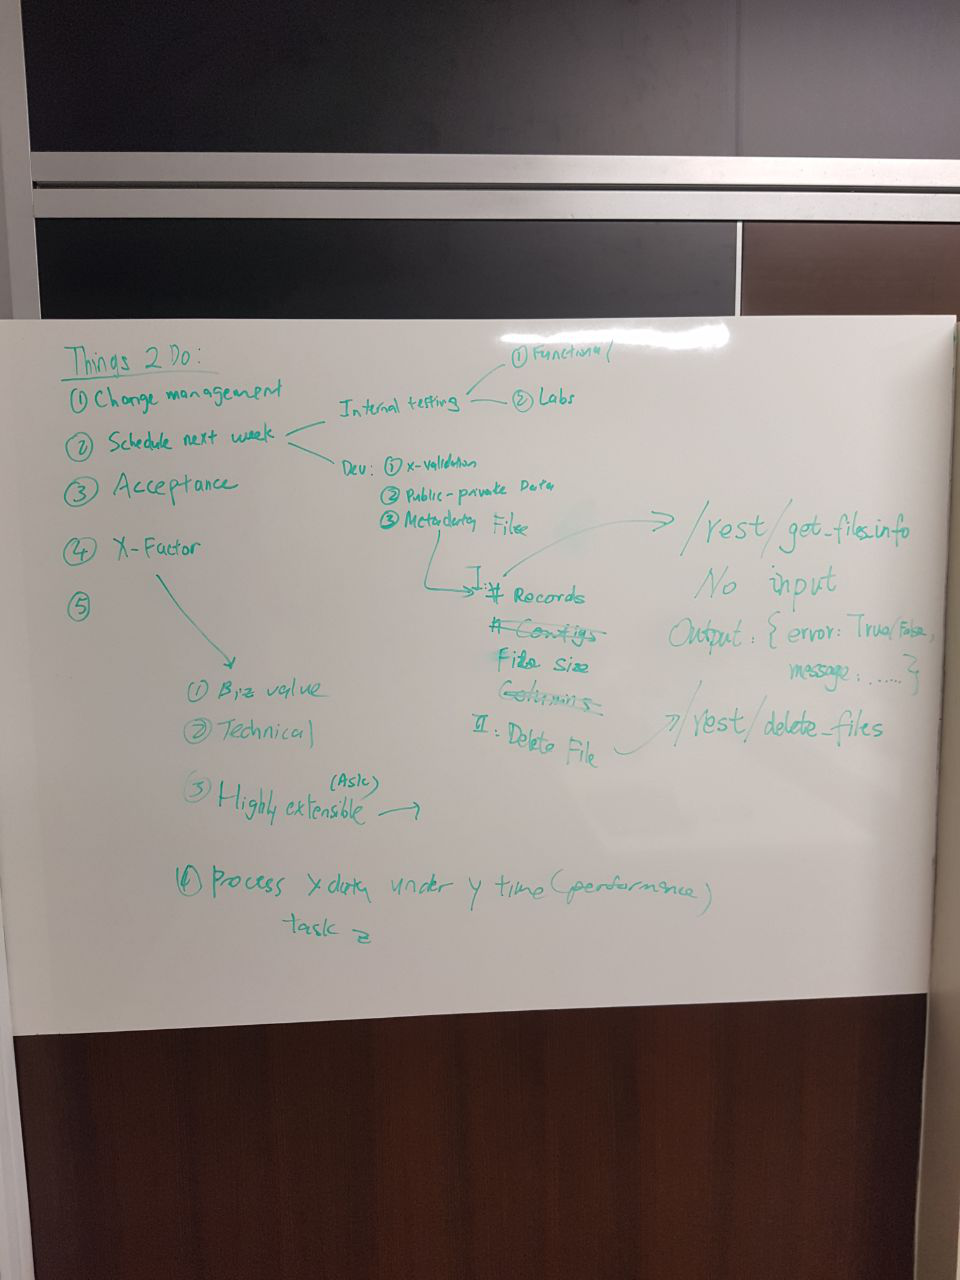 Things 2 Do:
① Change management
② Schedule next week
③ Acceptance
④ X-Factor
⑤
Internal testing
① Functional
② Labs
Dev: ① x-validation
② Public-private Data
③ Metadata Files
I: # Records
# Configs
File size
Columns
II: Delete File
/rest/get_files_info
No input
Output: { error: True/False,
message: ...... }
/rest/delete_files
① Biz value
② Technical
③ Highly extensible (Ask)
④ Process x data under y time (performance)
task z